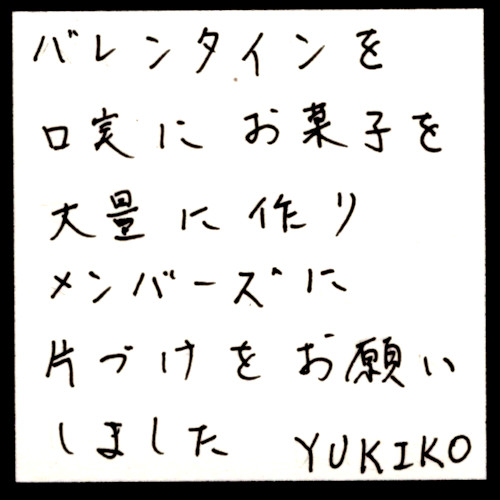 バレンタインを
口実に お菓子を
大量に作り
メンバーズに
片づけをお願い
しました YUKIKO